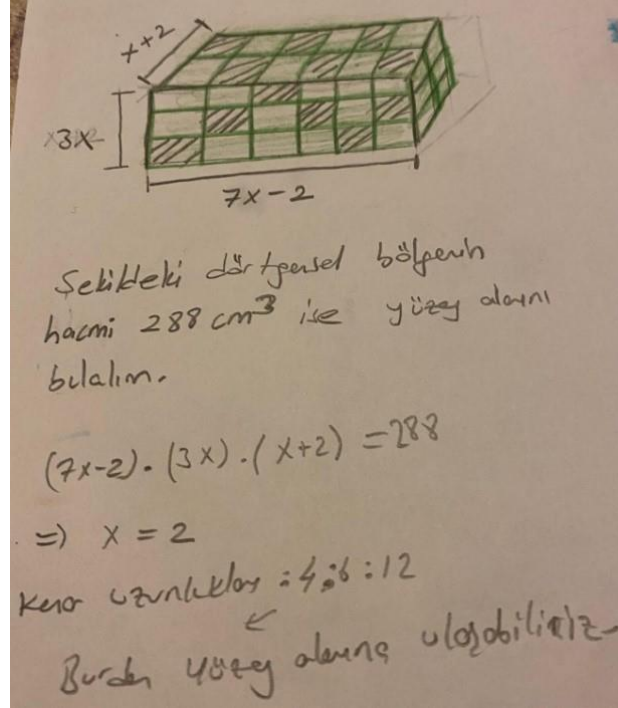 x+2
3x
7x-2
Şekildeki dörtgensel bölgenin
hacmi 288 cm³ ise yüzey alanını
bulalım.
(7x-2).(3x).(x+2)=288
=> x = 2
Kenar uzunlukları : 4:6:12
Burdan yüzey alanına ulaşabiliriz